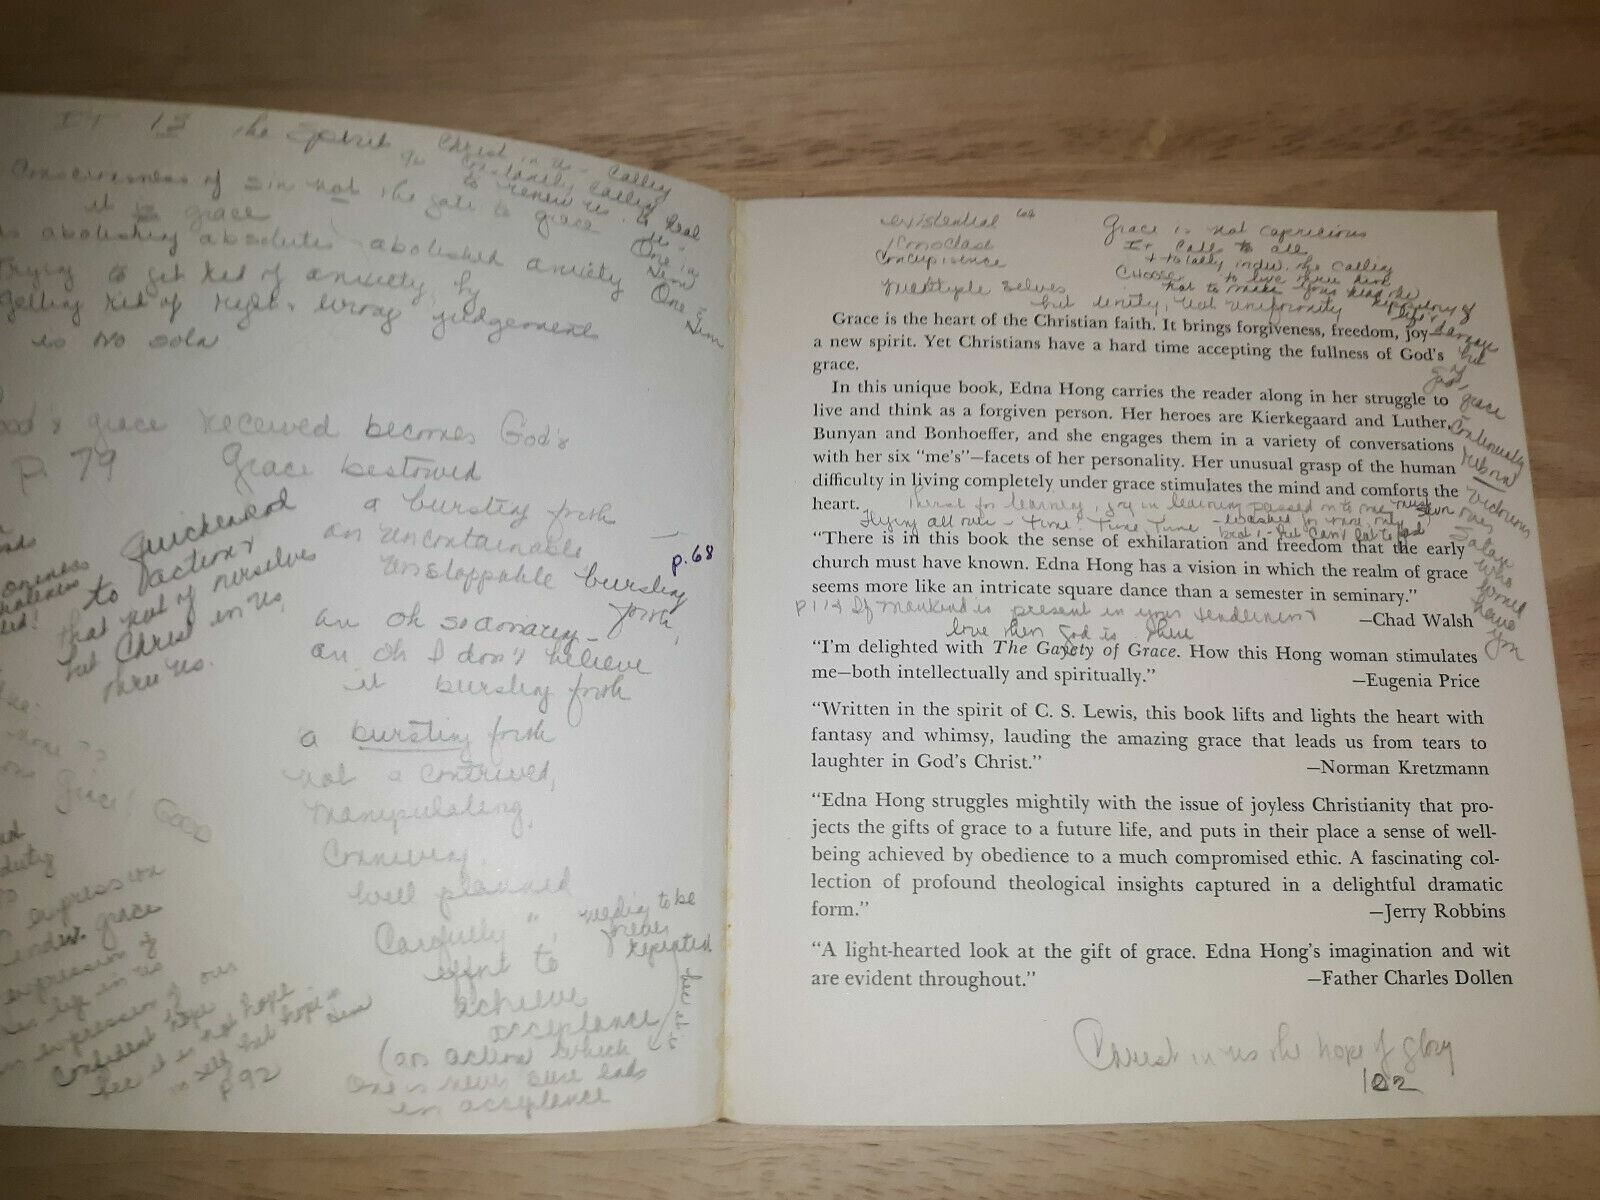 IT IS the Spirit
Christ in us - calling
constantly calling
to renew us. to heal
us.
Consciousness of sin not the gate to grace
it is grace
abolishing absolutes abolished anxiety
One in
Him
Trying to get rid of anxiety by
getting rid of right & wrong judgements
is no soln
One
Him
God's grace received becomes God's
P. 79 Grace bestowed
a bursting forth
an uncontainable
unstoppable bursting
forth,
p.68
Quickened
to action
that part of ourselves
but Christ in us,
thru us.
an oh so amazing
an oh I don't believe
it bursting forth
a bursting forth
not a contrived,
manipulating,
conniving,
well planned
Carefully
needing to be
repeated
effort to
achieve
acceptance
(an action which
one is never sure ends
in acceptance
Grace! Good
duty
expression
grace
expression of
in us
expression of our
confident hope
bec it is not hope
in self but hope in
Him
p 92
existential
iconoclast
concupisence
Multiple selves
but unity, not uniformity
Grace is not capricious
It calls to all
& totally indiv. the calling
Choose to live
not to make your
Grace is the heart of the Christian faith. It brings forgiveness, freedom, joy—
a new spirit. Yet Christians have a hard time accepting the fullness of God's
grace.
In this unique book, Edna Hong carries the reader along in her struggle to
live and think as a forgiven person. Her heroes are Kierkegaard and Luther,
Bunyan and Bonhoeffer, and she engages them in a variety of conversations
with her six "me's"—facets of her personality. Her unusual grasp of the human
difficulty in living completely under grace stimulates the mind and comforts the
heart.
of
God's
grace
Continually
reborn
victorious
over
Satan
who
have
you
thirst for learning, joy in learning passed on to me
Flying all over - Time! Time, Time
"There is in this book the sense of exhilaration and freedom that the early
church must have known. Edna Hong has a vision in which the realm of grace
seems more like an intricate square dance than a semester in seminary."
—Chad Walsh
If mankind is present in your tenderness &
love then God is there
"I'm delighted with The Gayety of Grace. How this Hong woman stimulates
me—both intellectually and spiritually."
—Eugenia Price
"Written in the spirit of C. S. Lewis, this book lifts and lights the heart with
fantasy and whimsy, lauding the amazing grace that leads us from tears to
laughter in God's Christ."
—Norman Kretzmann
"Edna Hong struggles mightily with the issue of joyless Christianity that pro-
jects the gifts of grace to a future life, and puts in their place a sense of well-
being achieved by obedience to a much compromised ethic. A fascinating col-
lection of profound theological insights captured in a delightful dramatic
form."
—Jerry Robbins
"A light-hearted look at the gift of grace. Edna Hong's imagination and wit
are evident throughout."
—Father Charles Dollen
Christ in us the hope of glory
102